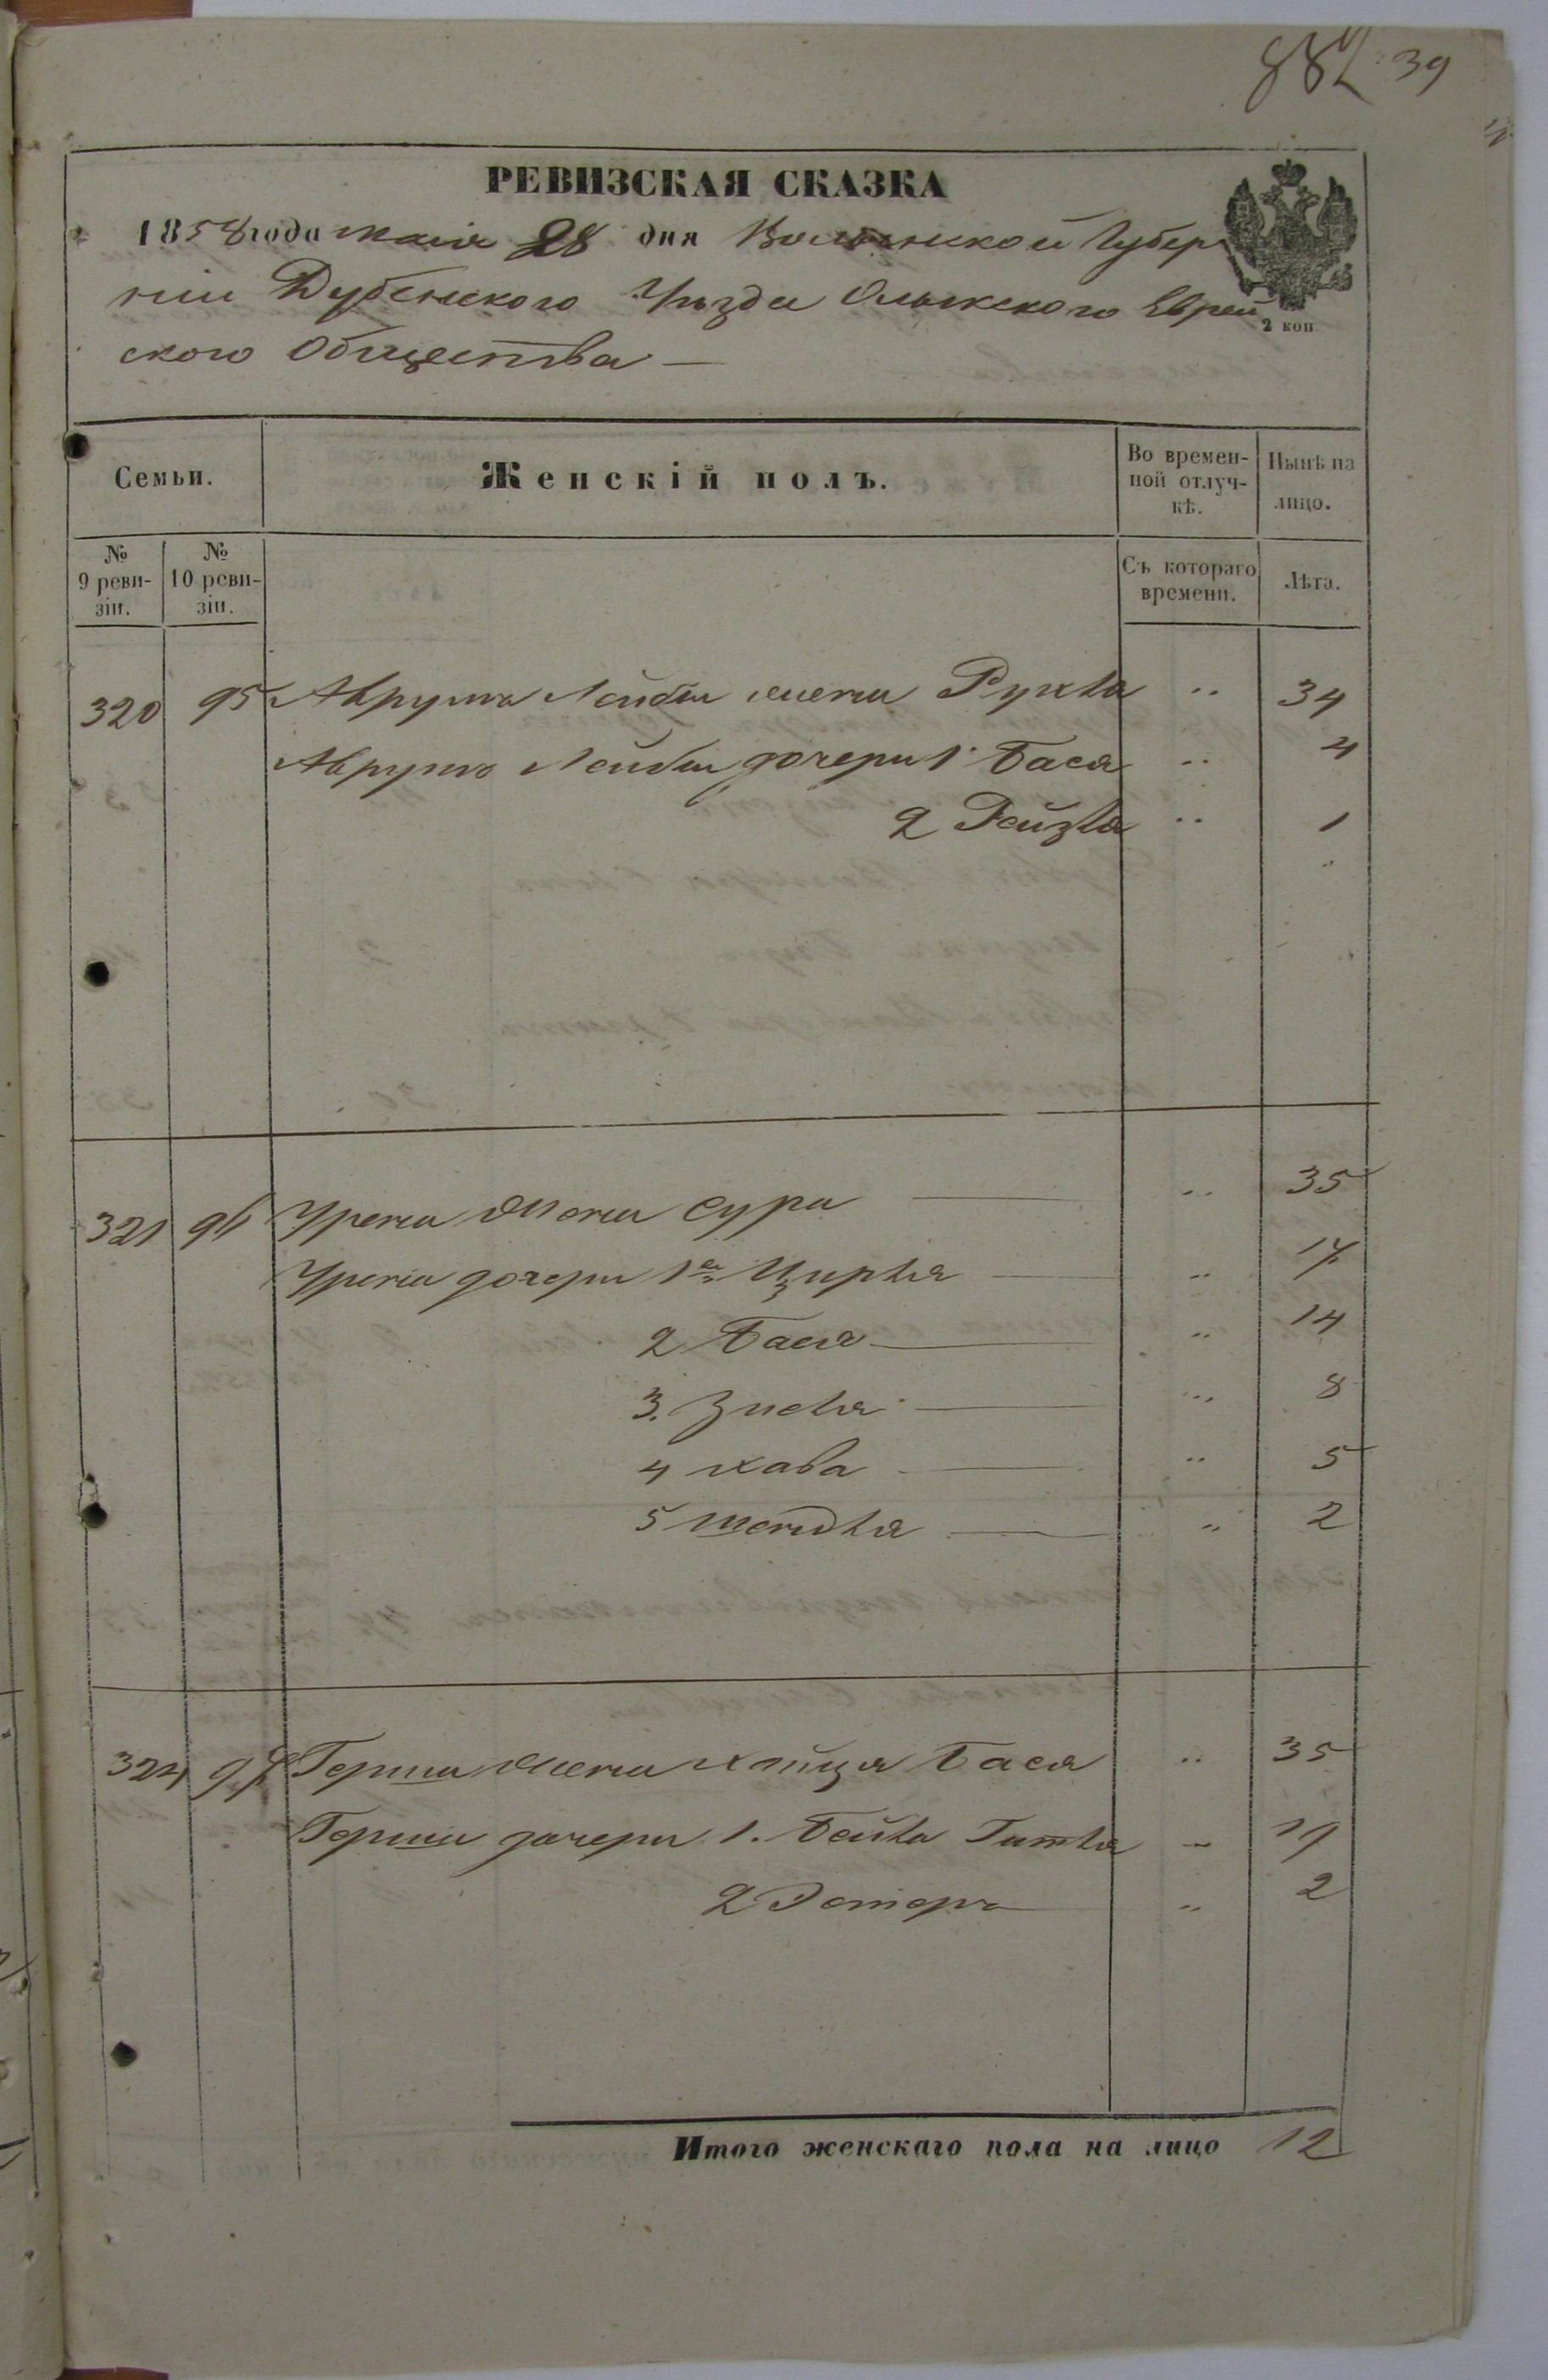 882 39
РЕВИЗСКАЯ СКАЗКА
1858 года маія 28 дня Волынской Губер
ніи Дубенского Уѣзда Олыкского Еврей
2 коп
ского Общества —
Семьи.
Женскій полъ.
Во времен-
ной отлуч-
кѣ.
Нынѣ на
лицо.
№
9 реви-
зіи.
№
10 реви-
зіи.
Съ котораго
времени.
Лѣта.
320 95 Аврумъ Лейбы жена Рухля " 34
Аврумъ Лейбы дочери 1 Бася " 4
2 Рейзля " 1
321 96 Уреня жена Сура — " 35
Уреня дочери 1я Цирля — " 17
2 Бася — " 14
3. Зисля — " 8
4 Хава — " 5
5 Шендля — " 2
324 97 Герша жена Бася " 35
Герши дочери 1. Бейла Гитля " 19
2 Эстеръ " 2
Итого женскаго пола на лицо 12